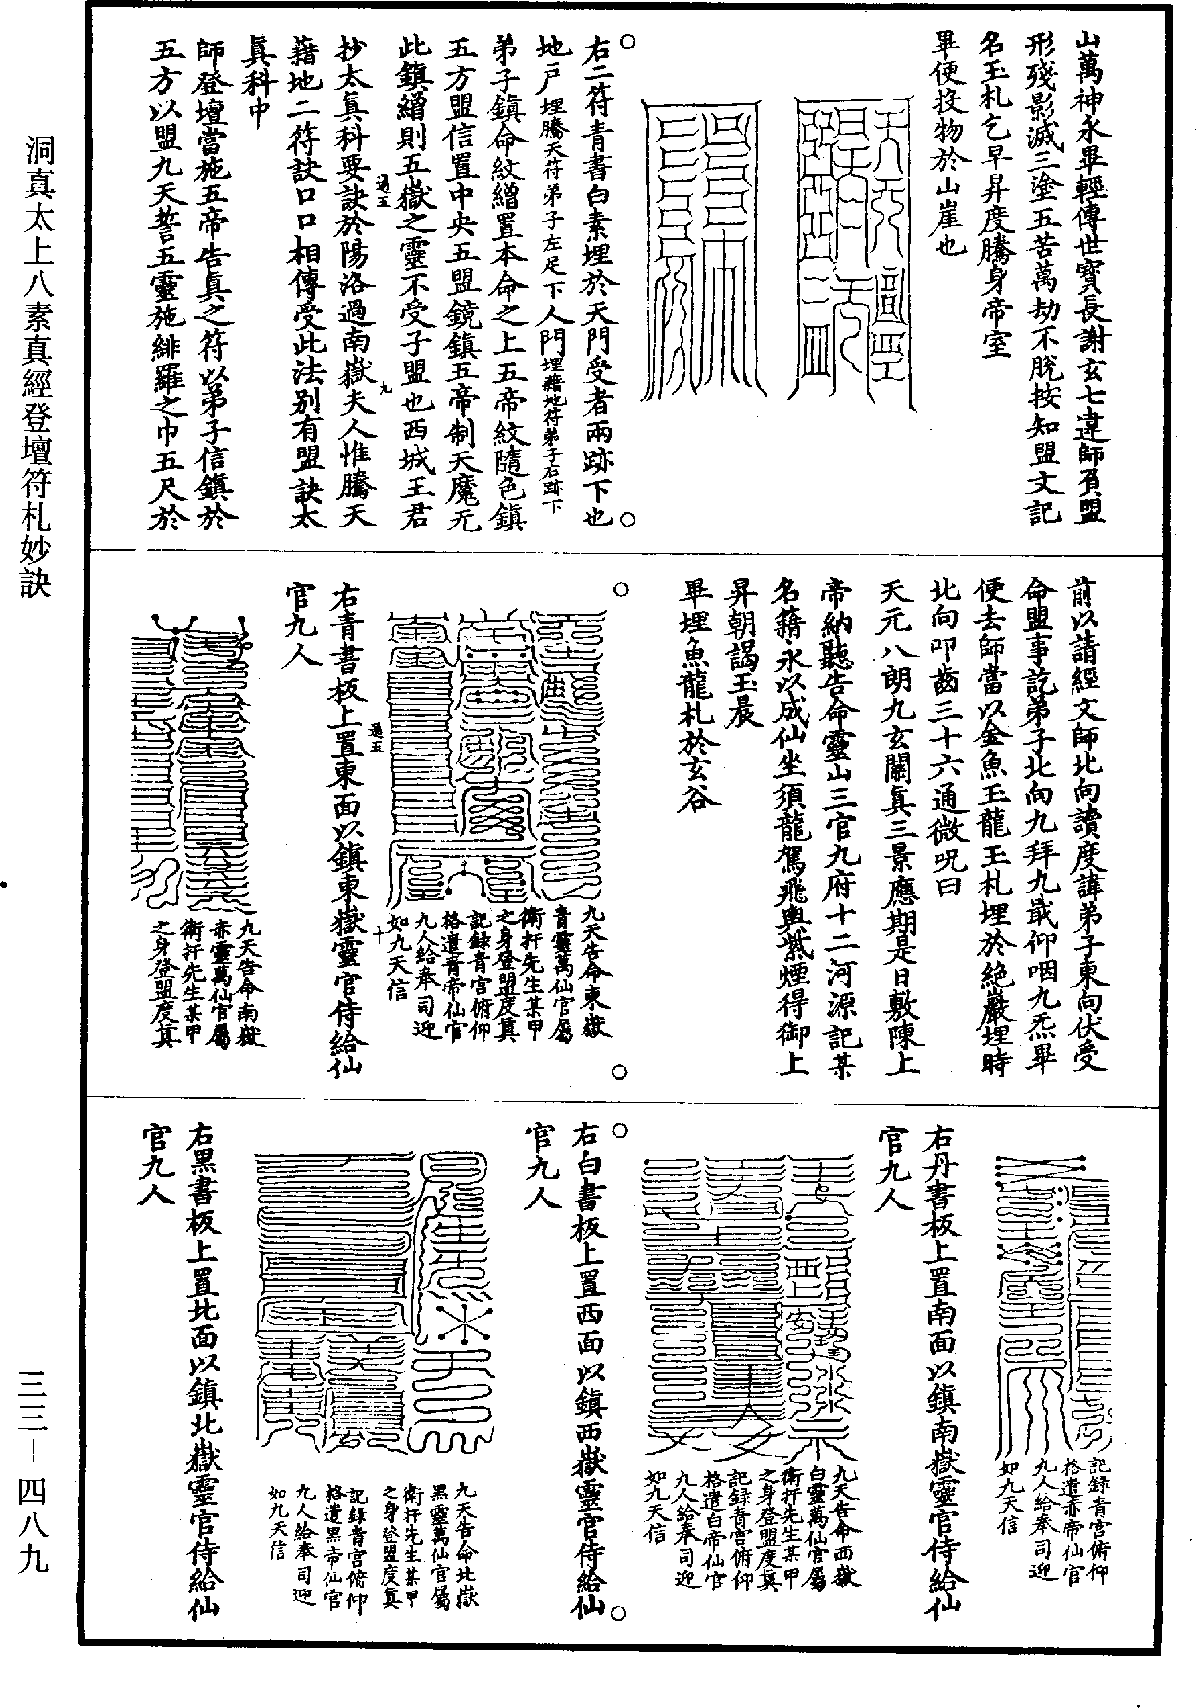 山萬神永畢輕傳世寶長謝玄七違師負盟
形殘影滅三塗五苦萬劫不脫按知盟文記
名玉札乞早昇度騰身帝室
畢便投物於山崖也
右二符青書白素埋於天門受者兩跡下也
地戶埋騰天符弟子左足下人門埋藉地符弟子右跡下
弟子鎮命紋繒置本命之上五帝紋隨色鎮
五方盟信置中央五盟鏡鎮五帝制天魔无
此鎮繒則五嶽之靈不受子盟也西城王君
過五
九
抄太真科要訣於陽洛過南嶽夫人惟騰天
藉地二符訣口口相傳受此法別有盟訣太
真科中
師登壇當施五帝告真之符以弟子信鎮於
五方以盟九天誓五靈施緋羅之巾五尺於
前以請經文師北向讀度諱弟子東向伏受
命盟事訖弟子北向九拜九叩仰咽九炁畢
便去師當以金魚玉龍玉札埋於絶巖埋時
北向叩齒三十六通微呪曰
天元八朗九玄關真三景應期是日敷陳上
帝納聽告命靈山三官九府十二河源記某
名籍永以成仙坐須龍駕飛輿紫煙得御上
昇朝謁玉晨
畢埋魚龍札於玄谷
九天告命東嶽
青靈萬仙官屬
衛扞先生某甲
之身登盟度真
記録青宮俯仰
格遣青帝仙官
九人給奉司迎
如九天信
過五
十
右青書板上置東面以鎮東嶽靈官侍給仙
官九人
九天告命南嶽
赤靈萬仙官屬
衛扞先生某甲
之身登盟度真
記録青宮俯仰
格遣赤帝仙官
九人給奉司迎
如九天信
右丹書板上置南面以鎮南嶽靈官侍給仙
官九人
九天告命西嶽
白靈萬仙官屬
衛扞先生某甲
之身登盟度真
記録青宮俯仰
格遣白帝仙官
九人給奉司迎
如九天信
右白書板上置西面以鎮西嶽靈官侍給仙
官九人
九天告命北嶽
黑靈萬仙官屬
衛扞先生某甲
之身登盟度真
記録青宮俯仰
格遣黑帝仙官
九人給奉司迎
如九天信
右黑書板上置北面以鎮北嶽靈官侍給仙
官九人
洞真太上八素真經登壇符札妙訣
三三－四八九